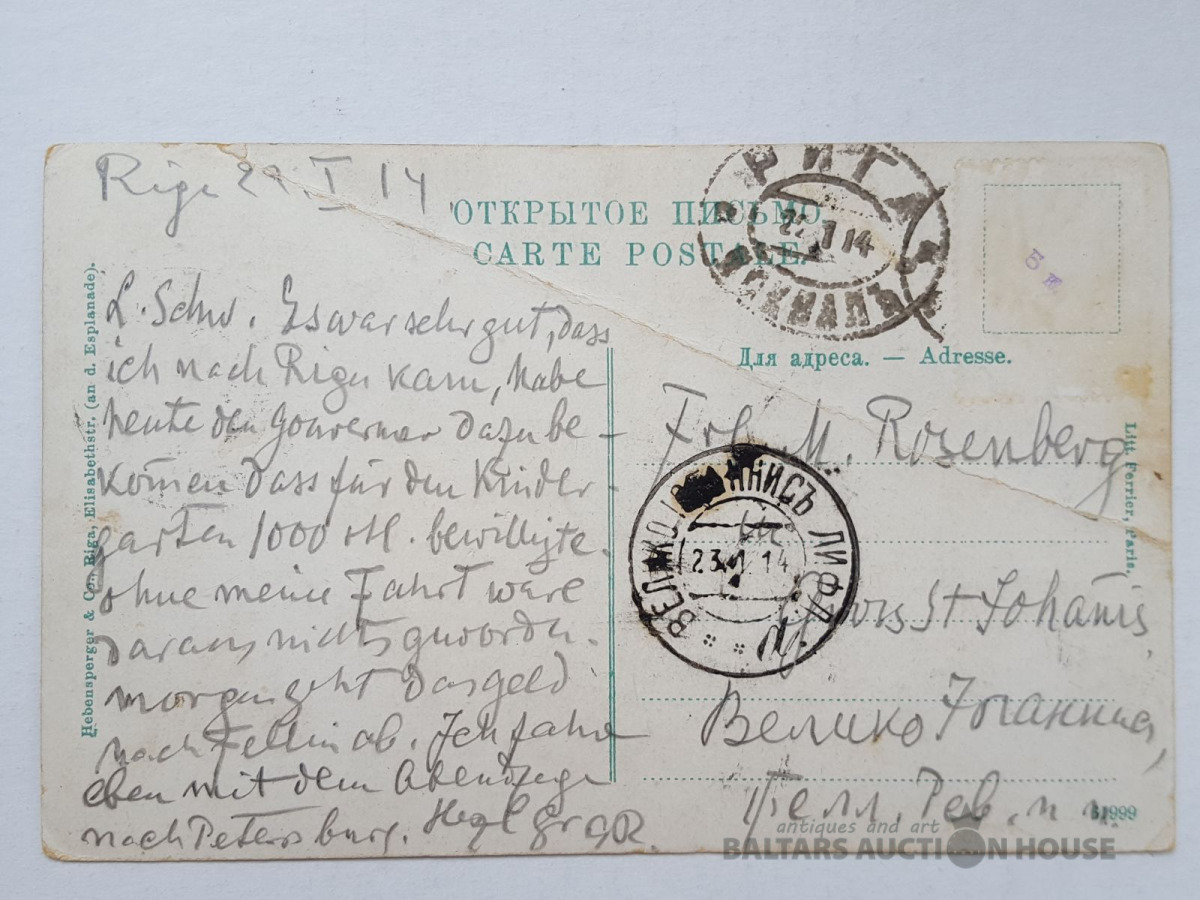 Riga 22 I 14
ОТКРЫТОЕ ПИСЬМО
CARTE POSTALE.
РИГА
22 1 14
ВОКЗАЛЪ
Для адреса. — Adresse.
L. Schw. Es war sehr gut, dass
ich nach Riga kam, habe
heute den Gouverneur dazu be-
kom̄en dass für den Kinder-
garten 1000 Rbl. bewilligte.
ohne meine Fahrt wäre
daraus nichts geworden.
morgen geht das Geld
nach Fellin ab. Ich fahre
eben mit dem Abendzuge
nach Petersburg. Herzl Gr
Frl. M. Rosenberg
in
Gross St Johannis
Велико Іоаннис,
Фелл.
ВЕЛИКО ІОАННИСЪ ЛИФЛ.
23 1 14
Hebensperger & Co., Riga, Elisabethstr. (an d. Esplanade).
Litt. Ferrier, Paris.
61999
antiques and art
BALTARS AUCTION HOUSE